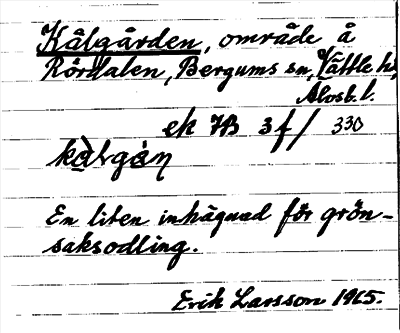 Kålgården, område å
Rördalen, Bergums sn, Vättle hd,
Älvsb. l.
ek 7B 3f/ 330
kàlgȧŋ
En liten inhägnad för grön-
saksodling.
Erik Larsson 1965.